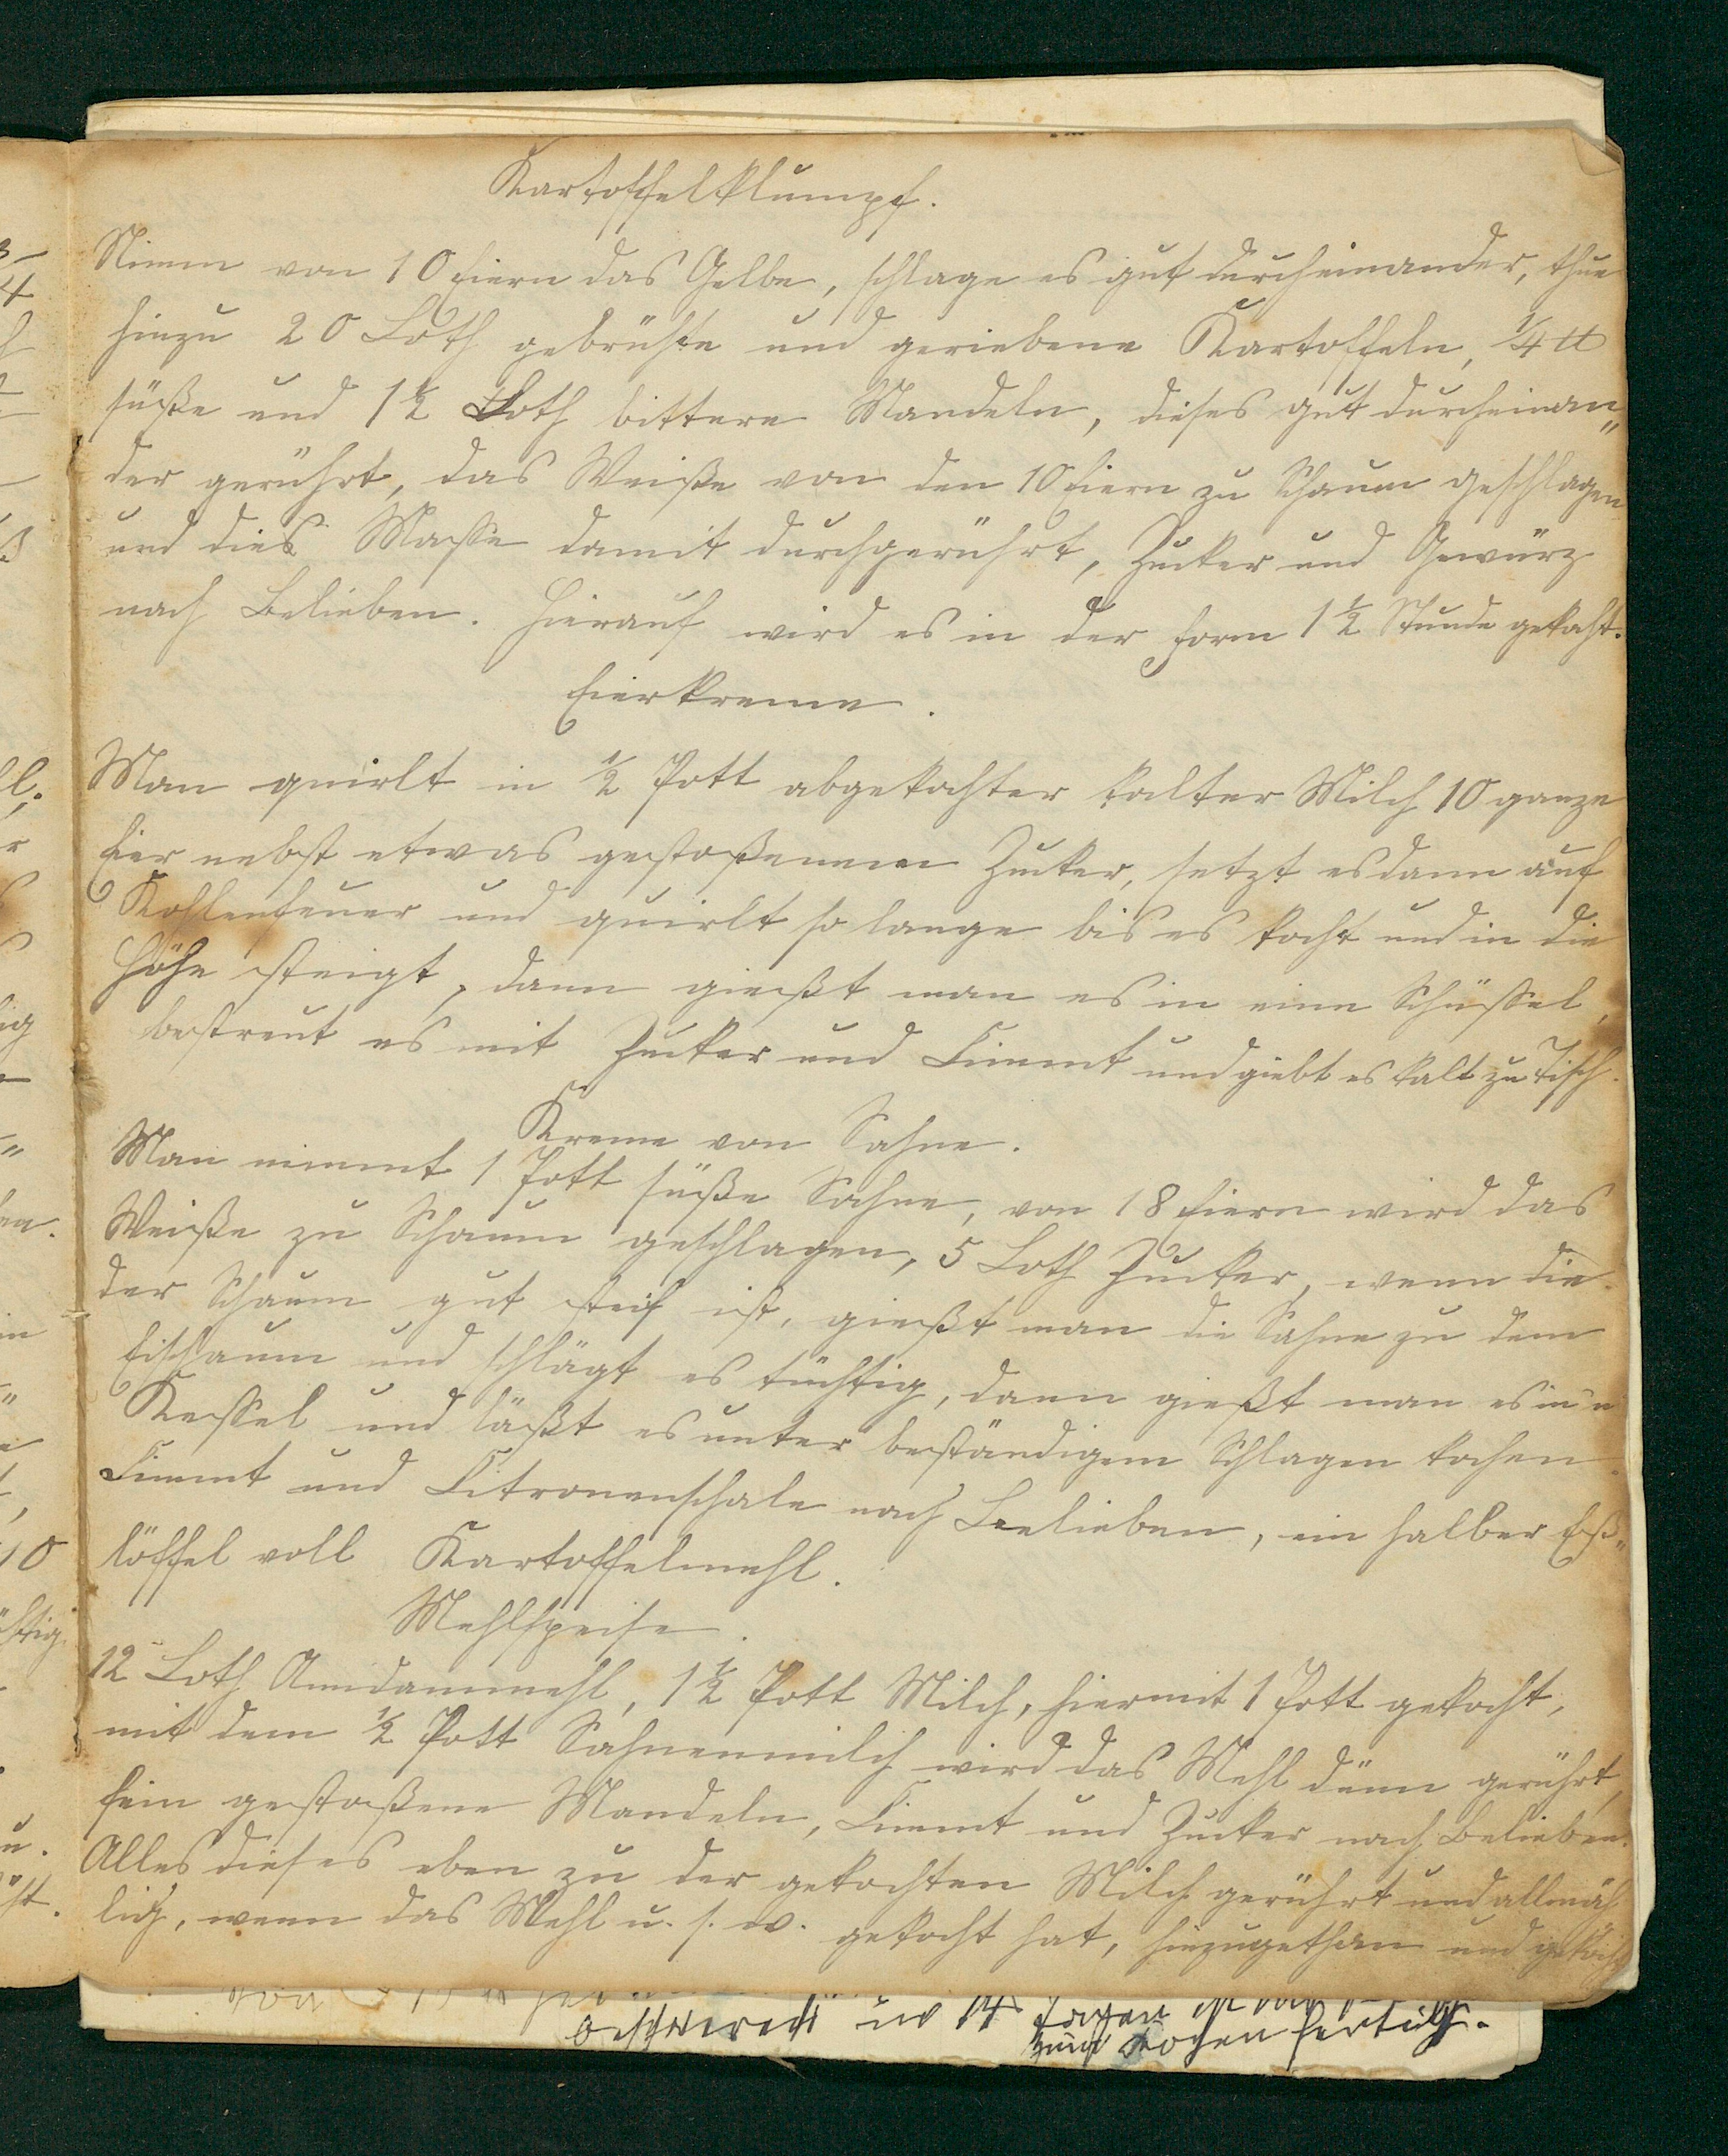 Kartoffelklumpf.
Nimm von 10 Eiern das Gelbe, schlage es gut durcheinander, thue
hinzu 20 Loth gebrühte und geriebene Kartoffeln, 1/4 ℔
süße und 1 1/2 Loth bittere Mandeln, dieses gut durcheinan„
der gerührt, das Weiße von den 10 Eiern zu Schaum geschlagen
und dies Masse damit durchgerührt, Zucker und Gewürz
nach Belieben. Hierauf wird es in der Form 1 1/2 Stunde gekocht.
Eierkreme.
Man quirlt in 1/2 Pott abgekochter kalter Milch 10 ganze
Eier nebst etwas gestoßenem Zucker, setzt es dann auf
Kohlenfeuer und quirlt so lange bis es kocht und in die
Höhe steigt, dann gießt man es in eine Schüssel,
bestreut es mit Zucker und Cimmt und giebt es kalt zu Tisch.
Kreme von Sahne.
Man nimmt 1 Pott süße Sahne, von 18 Eiern wird das
Weiße zu Schaum geschlagen, 5 Loth Zucker, wenn die
der Schaum gut steif ist, gießt man die Sahne zu dem
Eischaum und schlägt es tüchtig, dann gießt man es in'n
Kessel und läßt es unter beständigem Schlagen kochen.
Cimmt und Citronenschale nach Belieben, ein halber Eß„
löffel voll Kartoffelmehl.
Mehlspeise.
12 Loth Amdammehl, 1 1/2 Pott Milch, hiermit 1 Pott gekocht,
mit dem 1/2 Pott Sahnenmilch wird das Mehl dünn gerührt,
fein gestoßene Mandeln, Cimmt und Zucker nach Belieben.
Alles dieses eben zu der gekochten Milch gerührt und allmäh
lig, wenn das Mehl u. s. w. gekocht hat, hinzugethan und gekocht
beschwerdt in 14 Tagen ist
zum Kochen fertich.